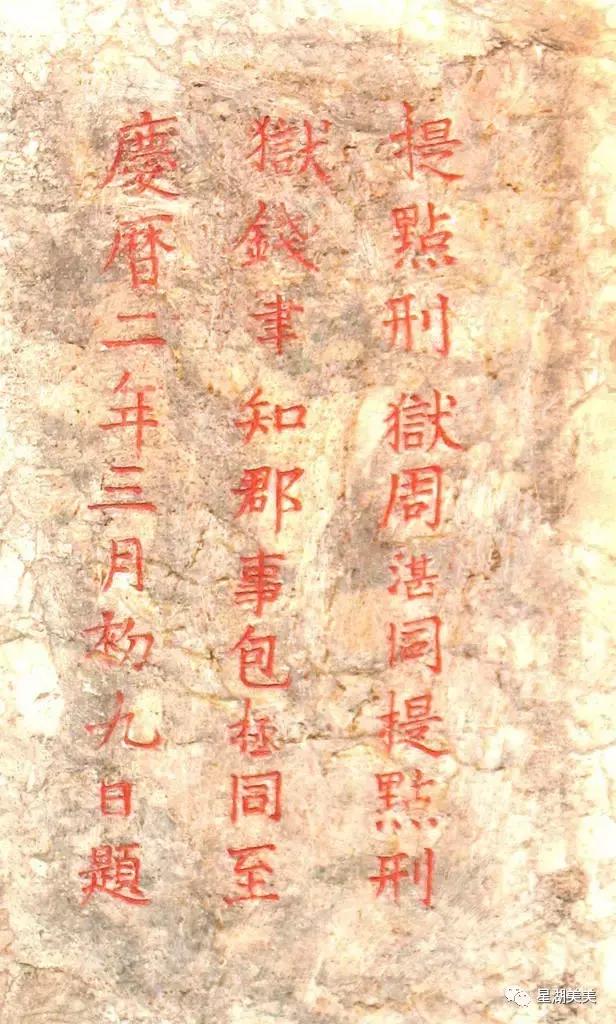 提點刑獄周湛同提點刑
獄錢聿 知郡事包拯同至
慶曆二年三月初九日題
星湖美美